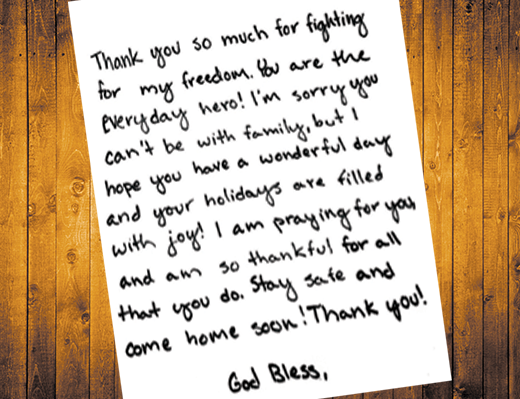 Thank you so much for fighting
for my freedom. You are the
everyday hero! I'm sorry you
can't be with family, but I
hope you have a wonderful day
and your holidays are filled
with joy! I am praying for you,
and am so thankful for all
that you do. Stay safe and
come home soon! Thank you!
God Bless,